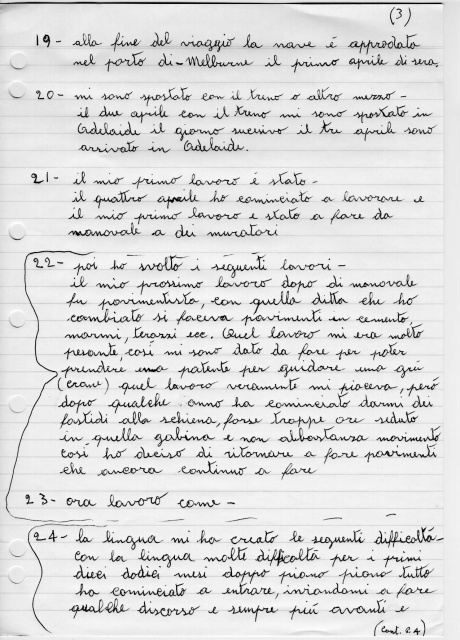 (3)
19- alla fine del viaggio la nave é approdata
nel porto di-Melburne il primo aprile di sera,
20- mi sono spostato con il treno o altro mezzo-
il due aprile con il treno mi sono spostato in
Adelaide il giorno sucesivo il tre aprile sono
arrivato in Adelaide.
21- il mio primo lavoro é stato-
il quattro aprile ho cominciato a lavorare e
il mio primo lavoro e stato a fare da
manovale a dei muratori
22- poi ho svolto i seguenti lavori-
il mio prossimo lavoro dopo di manovale
fu pavimentista, con quella ditta che ho
cambiato si faceva pavimenti in cemento,
marmi, terazzi ecc. Quel lavoro mi era molto
pesante, cosi mi sono dato da fare per poter
prendere una patente per guidare una grú
(crane) quel lavoro veramente mi piaceva, peró
dopo qualche anno ha cominciato darmi dei
fastidi alla schiena, forse troppe ore seduto
in quella gabina e non abbastanza movimento
cosi ho deciso di ritornare a fare pavimenti
che ancora continuo a fare
23- ora lavoro come-
24- la lingua mi ha creato le seguenti difficoltá-
con la lingua molte difficoltá per i primi
dieci dodici mesi doppo piano piano tutto
ha cominciato a entrare, iniziando a fare
qualche discorso e sempre piú avanti e
(cont. 24)